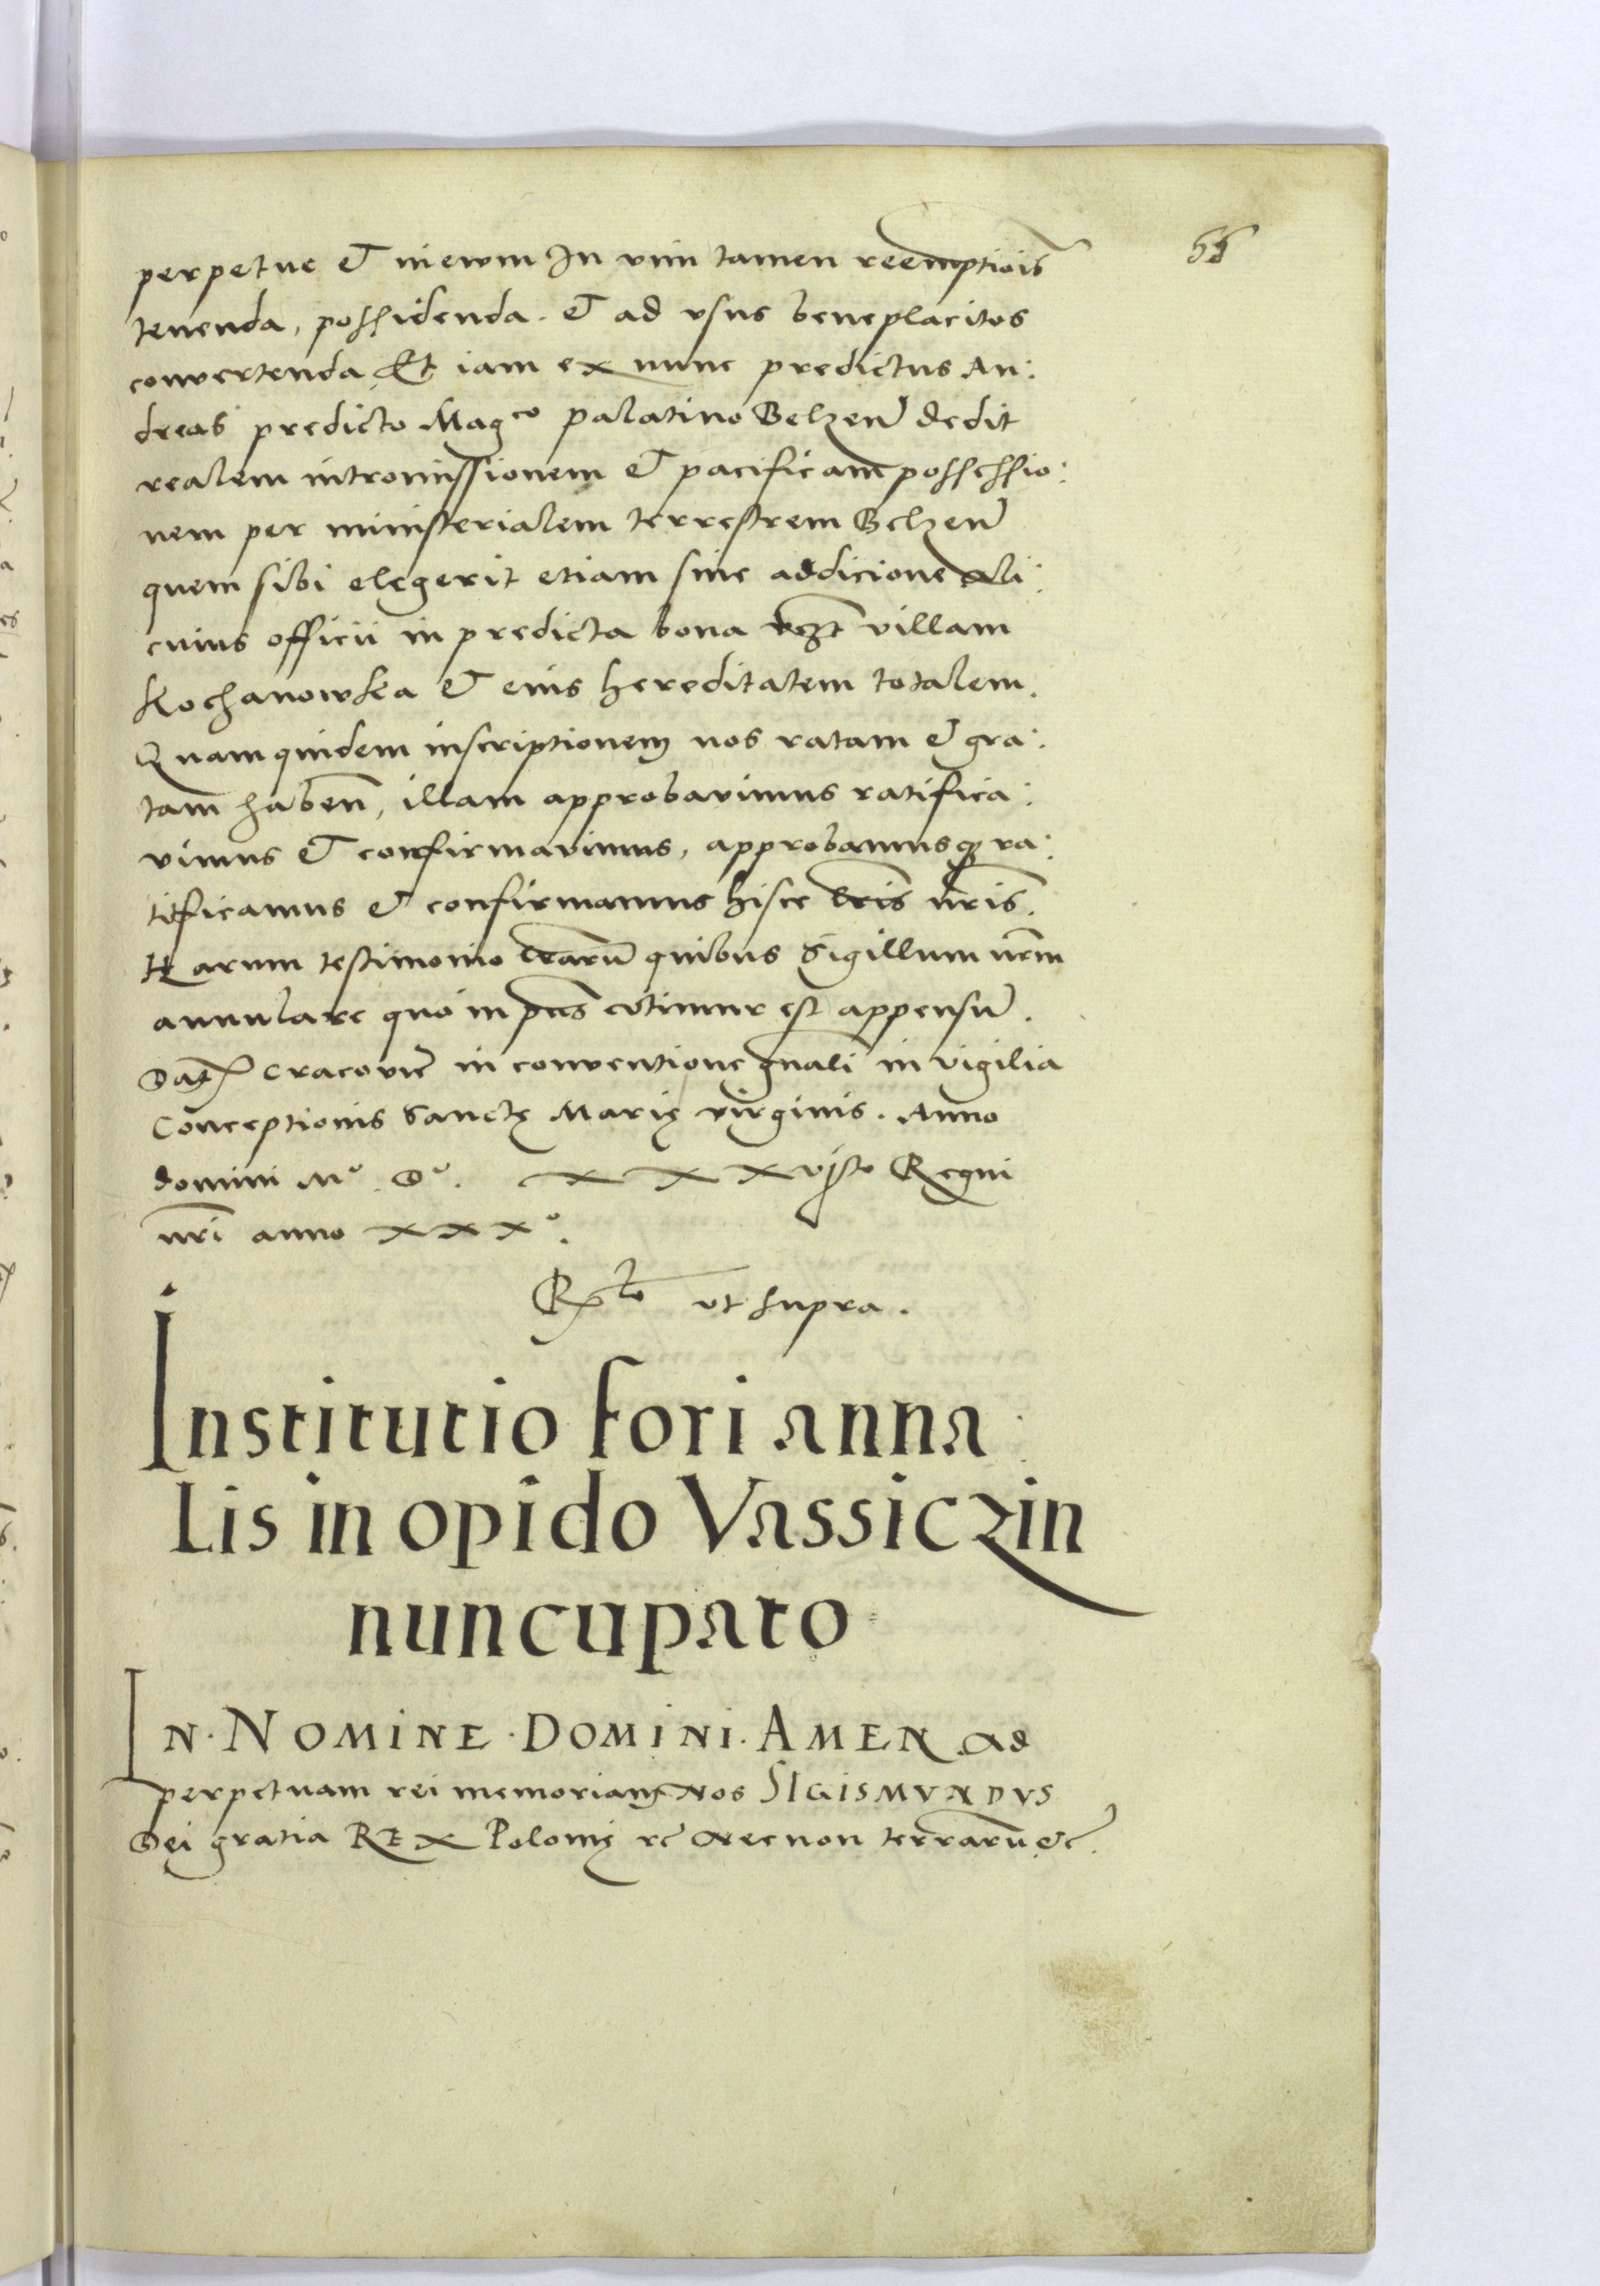 55
perpetue et inewm In vim tamen reemptiõis
tenenda, possidenda. et ad vsus beneplacitos
convertenda Et iam ex nunc predictus An:
dreas predicto Magco palatino Belzen̄ dedit
realem intromissionem et pacificam possessio:
nem per ministerialem terrestrem Belzen̄
quem sibi elegerit etiam sine addicione ali:
cuius officii in predicta bona villam
Kochanowska et eius hereditatem totalem.
Quam quidem inscriptionem nos ratam et gra:
tam haben̄, illam approbavimus ratifica:
vimus et confirmavimus, approbamusq ra:
tificamus et confirmamus hisce lr̄is nr̄is.
Harum testimonio lr̄arū quibus Sigillum nr̄m
annulare quo in pn̄s vtimur est appensū.
Dat Cracovie in conventione gn̄ali in vigilia
Conceptionis Sanctę Marię virginis. Anno
domini Mo. Do. xxxvjsto Regni
nr̄i anno xxxo.
Rlo vt supra.
Institutio fori anna
Lis in opido Vassiczin
nuncupato
In. Nomine. Domini. Amen ad
perpetuam rei memoriam Nos SIGISMVNDVS
Dei gratia REX Polonię rc̄ Necnon terrarū etc̄.